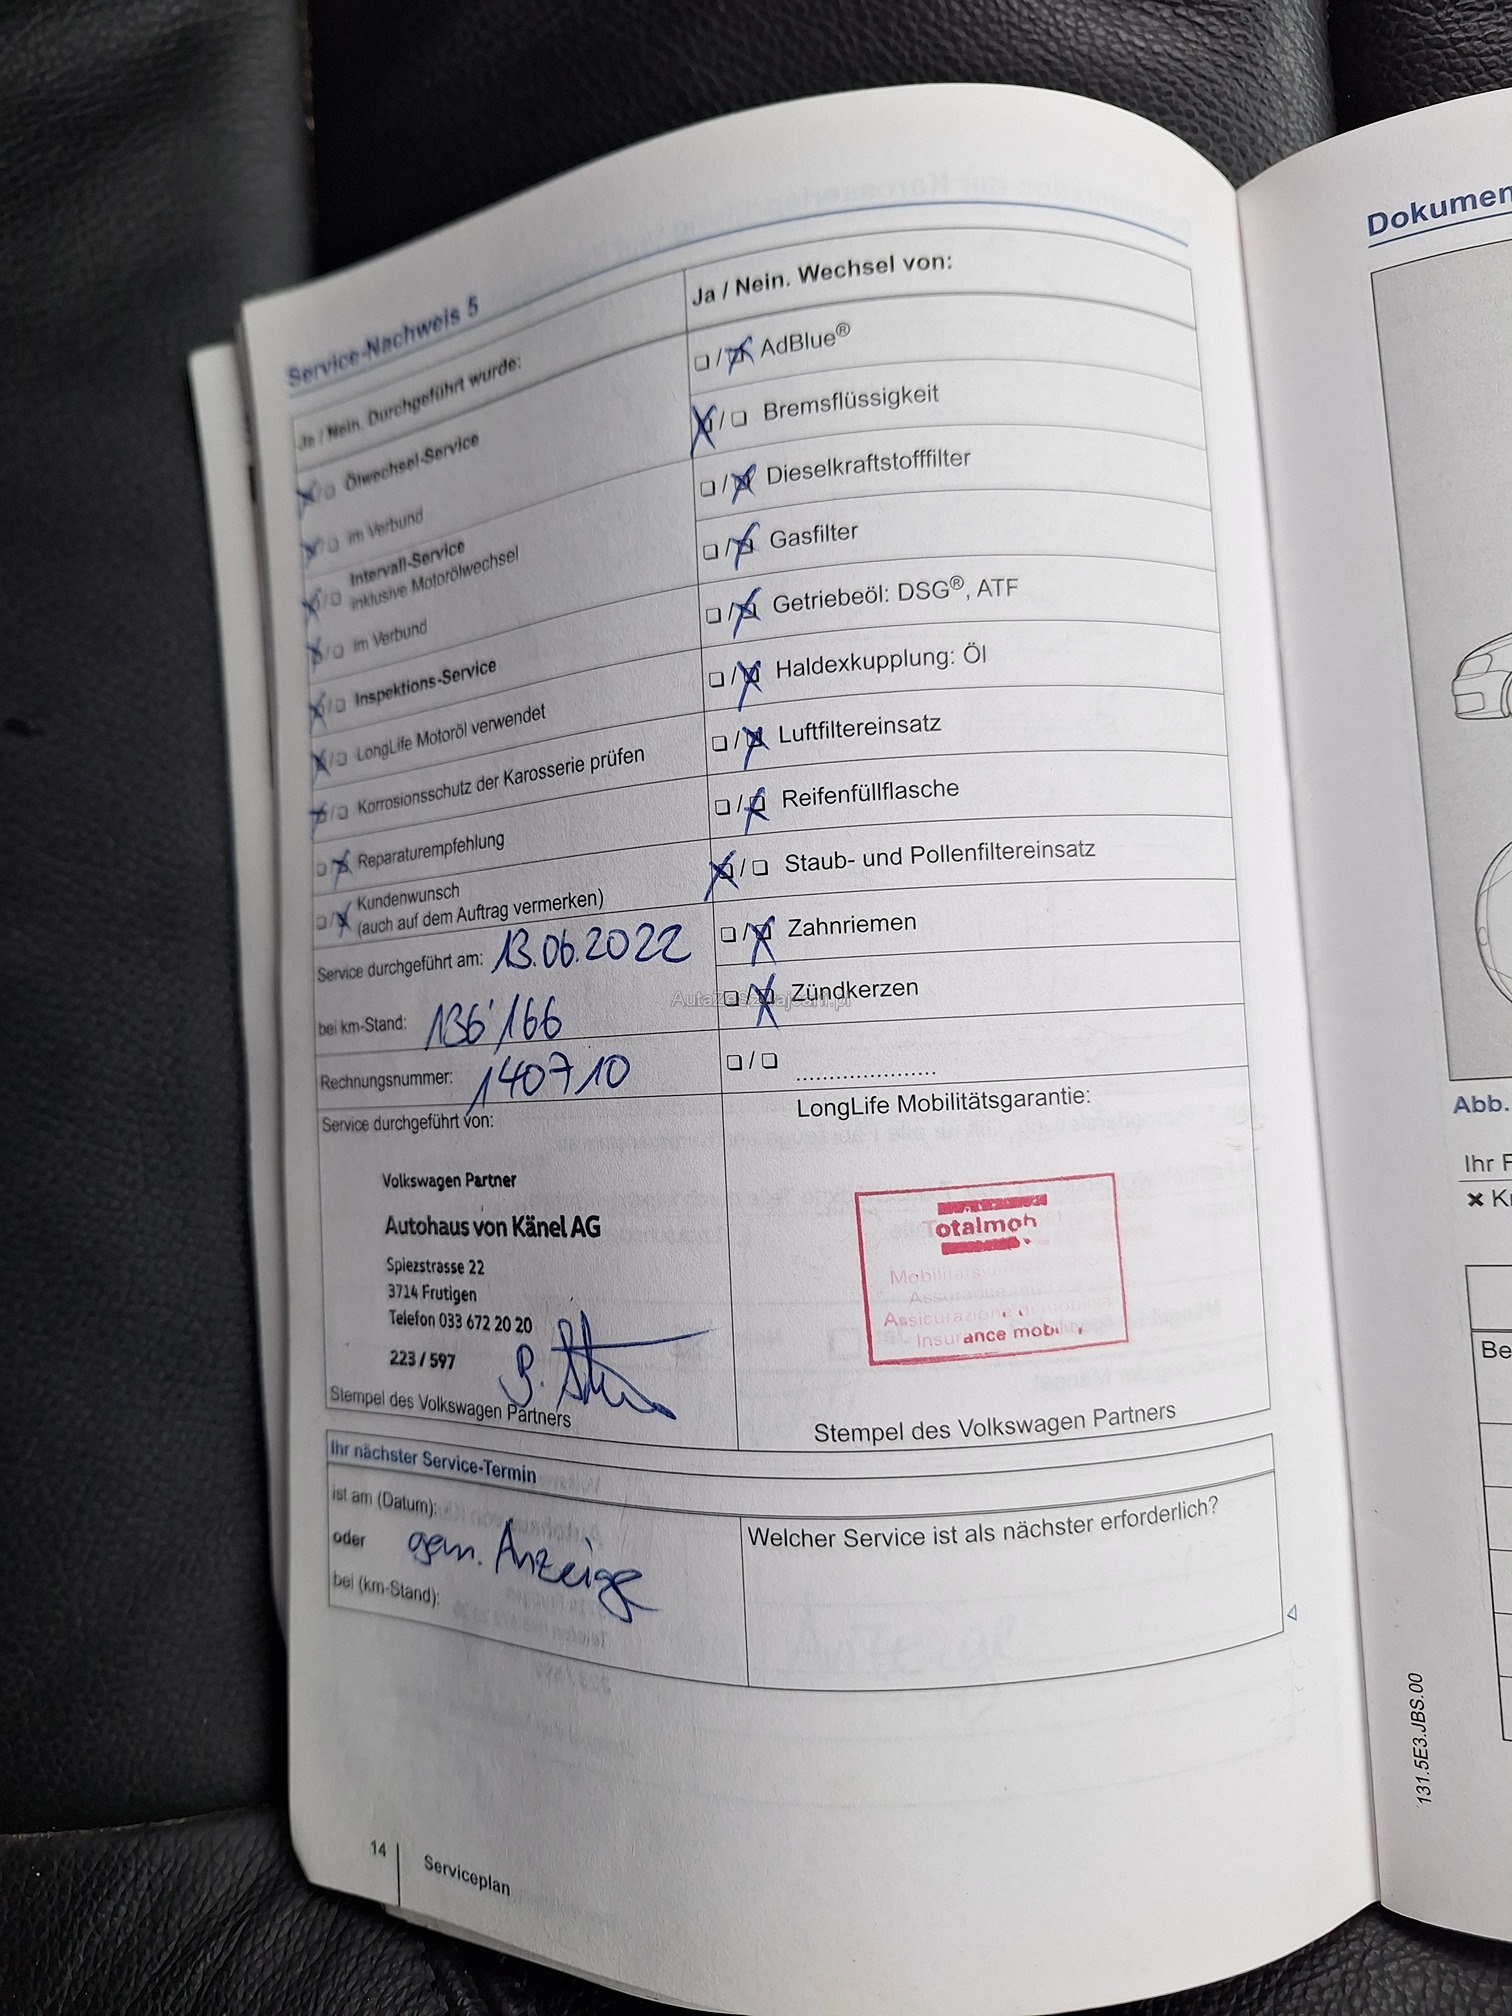 Service-Nachweis 5
Ja / Nein. Durchgeführt wurde:
Ölwechsel-Service
im Verbund
Intervall-Service
inklusive Motorölwechsel
im Verbund
Inspektions-Service
LongLife Motoröl verwendet
Korrosionsschutz der Karosserie prüfen
Reparaturempfehlung
Kundenwunsch
(auch auf dem Auftrag vermerken)
Service durchgeführt am: 13.06.2022
bei km-Stand: 136'166
Rechnungsnummer: 140710
Service durchgeführt von:
Volkswagen Partner
Autohaus von Känel AG
Spiezstrasse 22
3714 Frutigen
Telefon 033 672 20 20
223 / 597
Stempel des Volkswagen Partners
Ja / Nein. Wechsel von:
AdBlue®
Bremsflüssigkeit
Dieselkraftstofffilter
Gasfilter
Getriebeöl: DSG®, ATF
Haldexkupplung: Öl
Luftfiltereinsatz
Reifenfüllflasche
Staub- und Pollenfiltereinsatz
Zahnriemen
Zündkerzen
.....................
LongLife Mobilitätsgarantie:
Totalmob
Assicurazione di mobilità
Insurance mobility
Stempel des Volkswagen Partners
Ihr nächster Service-Termin
ist am (Datum):
oder gem. Anzeige
bei (km-Stand):
Welcher Service ist als nächster erforderlich?
14 Serviceplan
Dokumen
Abb.
Ihr F
Be
131.5E3.JBS.00